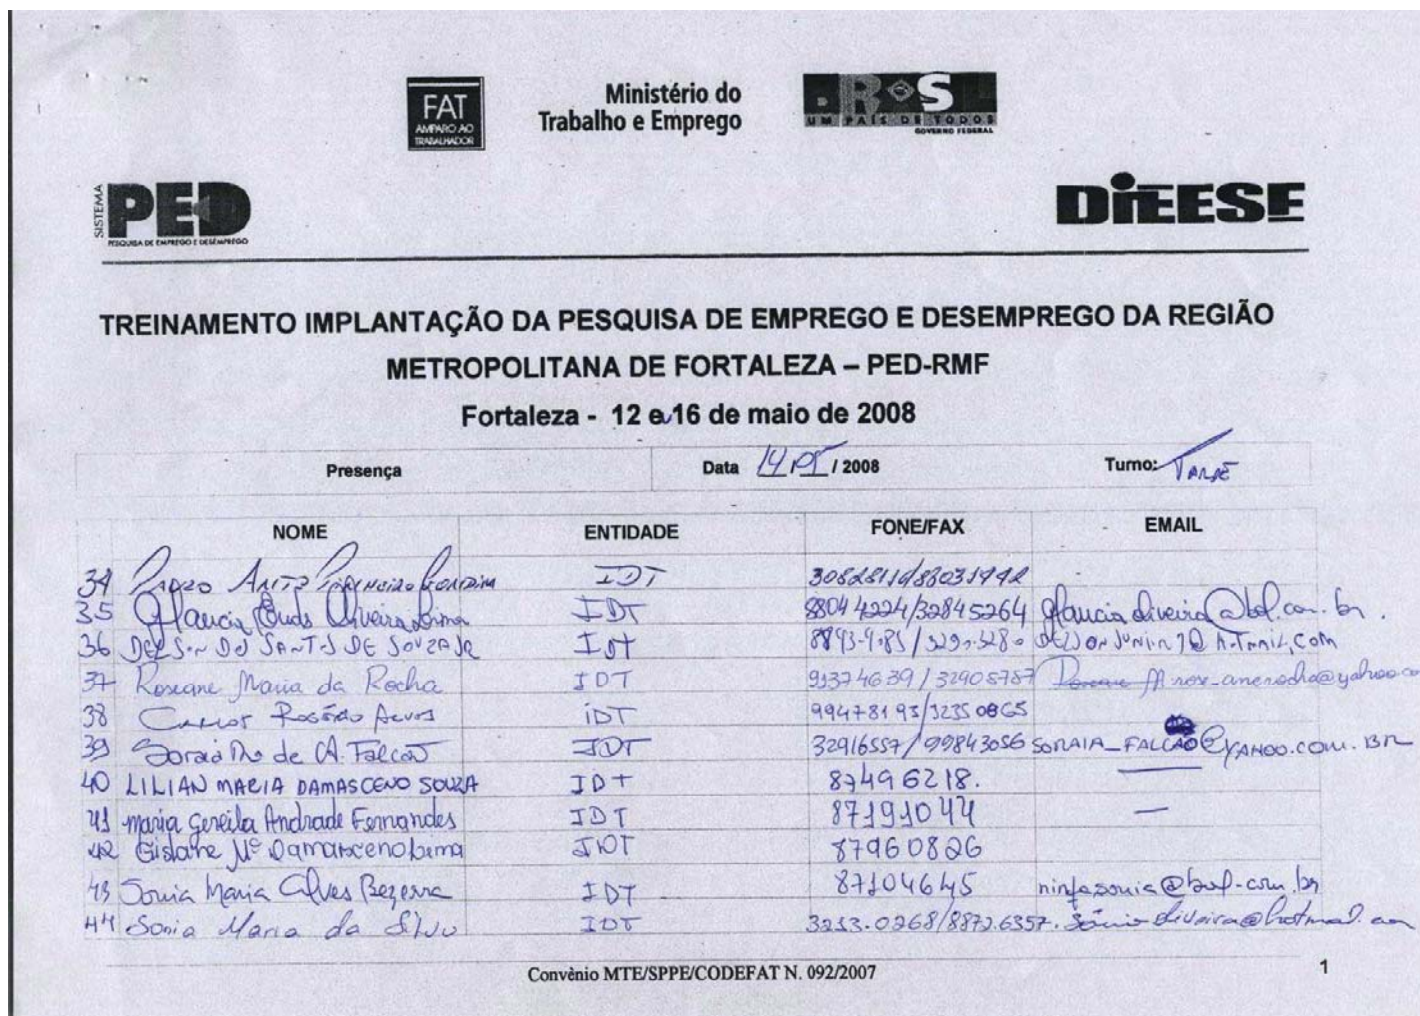 FAT
AMPARO AO
TRABALHADOR
Ministério do
Trabalho e Emprego
BRASIL
UM PAÍS DE TODOS
GOVERNO FEDERAL
SISTEMA
PED
PESQUISA DE EMPREGO E DESEMPREGO
DIEESE
TREINAMENTO IMPLANTAÇÃO DA PESQUISA DE EMPREGO E DESEMPREGO DA REGIÃO
METROPOLITANA DE FORTALEZA – PED-RMF
Fortaleza - 12 e 16 de maio de 2008
Presença Data 14/05 / 2008 Turno: TARDE
NOME ENTIDADE FONE/FAX EMAIL
34 IDT
35 Glaucia Oliveira Lima IDT 88044224/32845264 glaucia oliveira@bol.com.br.
36 DELSON DOS SANTOS DE SOUZA JR IDT
37 Roseane Maria da Rocha IDT 91374639 / 32905787
38 Carlos Rogério Alves IDT 99478193/32350865
39 Soraia Mª de A. Falcão IDT 32916557 / 99843056 SORAIA_FALCAO@YAHOO.COM.BR
40 LILIAN MARIA DAMASCENO SOUZA IDT 87496218. —
41 Maria Gereila Andrade Fernandes IDT 87191044 —
42 Gislane Mª Damasceno Lima IDT 87960826
43 Sonia Maria Alves Bezerra IDT 87104645 ninfasonia@bol.com.br
44 Sonia Maria da Silva IDT 3253.0268/8872.6357.
Convênio MTE/SPPE/CODEFAT N. 092/2007
1